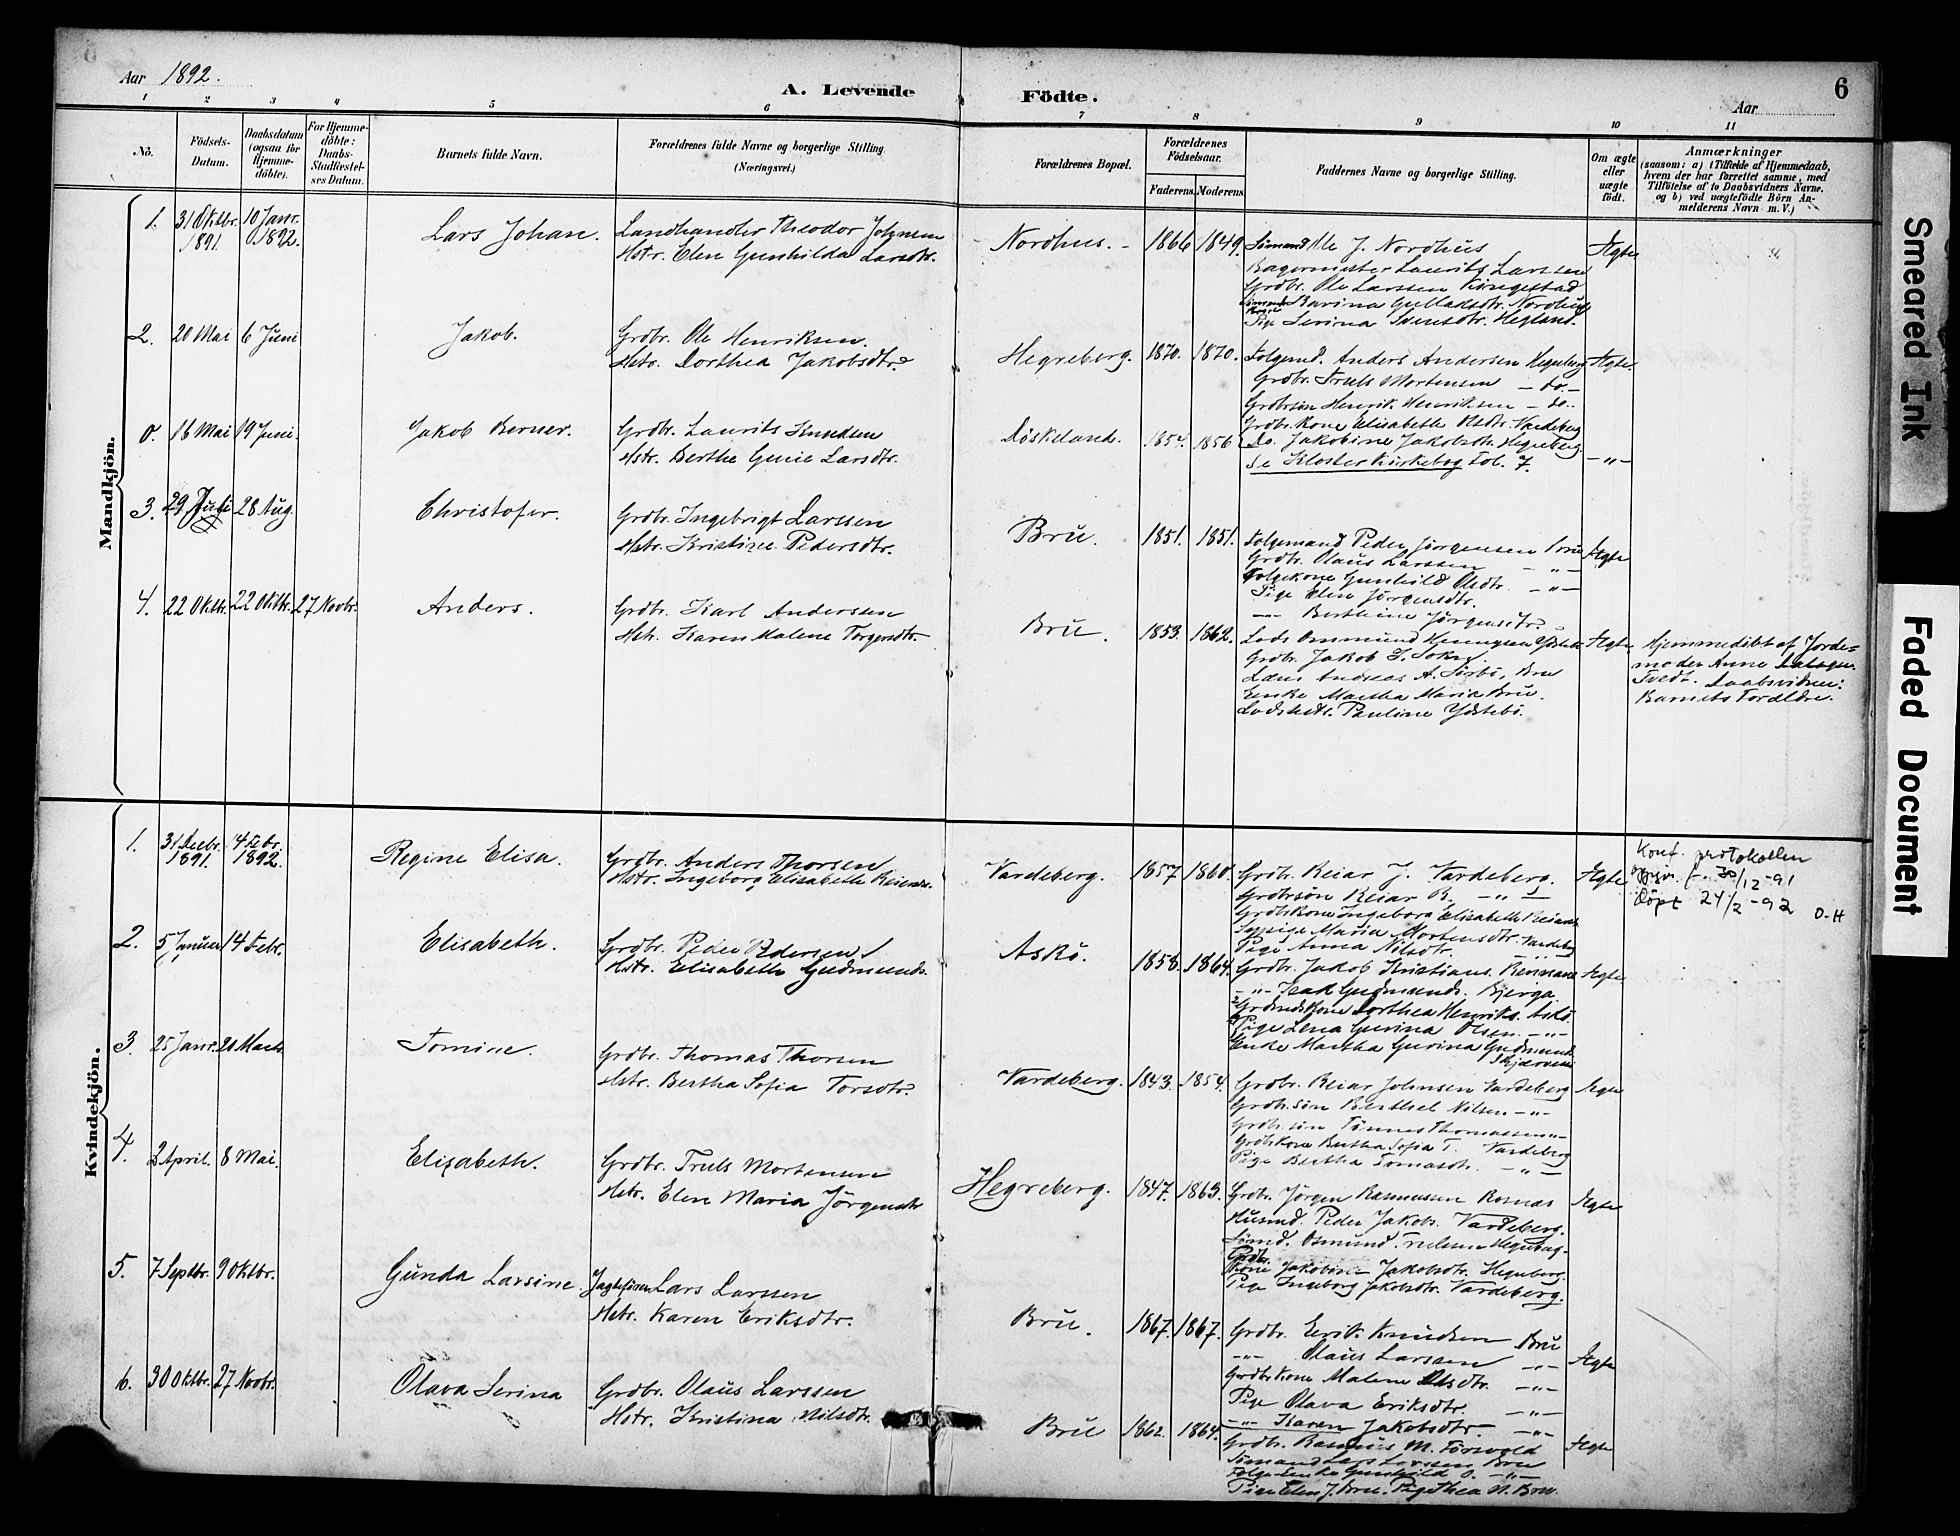 Aar 1892.
A. Levende Födte.
6
Aar
1 2 3 4 5 6 7 8 9 10 11
No.
Födsels-Datum.
Daabsdatum (ogsaa for Hjemme-döbte).
For Hjemme-döbte: Daabs-Stadfæstel-ses Datum.
Barnets fulde Navn.
Forældrenes fulde Navne og borgerlige Stilling (Næringsvei.)
Forældrenes Bopæl.
Forældrenes Födselsaar.
Faderens. Moderens.
Faddernes Navne og borgerlige Stilling.
Om ægte eller uægte födt.
Anmærkninger
(saasom: a) i Tilfælde af Hjemmedaab,
hvem der har forrettet samme, med
Tilföielse af to Daabsvidners Navne,
og b) ved uægtefödte Börn An-
melderens Navn m. V.)
Mandkjön.
1. 31 Oktbr. 1891. 10 Janr. 1892. Lars Johan. Landhandler Theodor Johnsen
Hstr. Elen Gunhilda Larsdtr.
Nordhus. 1866 1849. Sömand Ole J. Nordhus Ægte
Bagermester Laurits Larssen
Grdbr. Ole Larssen Ringestad
Karina Nordhus
Pige Serina Svensdtr. Hegland.
2. 20 Mai 6 Juni Jakob. Grdbr. Ole Henriksen.
Hstr. Dorthea Jakobsdtr.
Hegreberg. 1870. 1870. Folgemd. Anders Andersen Hegreberg Ægte
Grdbr. Truls Mortensen — do. —
Grdbrsön Henrik Henriksen — do. —
Grdbr. Kone Elisabeth Vardeberg
Do. Jakobine Jakobsdtr. Hegreberg
0. 16 Mai 19 Juni. Jakob Berner. Grdbr. Laurits Knudsen
Hstr. Berthe Larsdtr.
Döskeland. 1854. 1856 Se Kloster Kirkebog Fol. 7. — " —
3. 29 Juli 28 Aug. Christofer. Grdbr. Ingebrigt Larssen
Hstr. Kristine Pedersdtr.
Bru. 1851. 1851. Folgemand Peder Jörgensen Bru Ægte
Grdbr. Olaus Larssen — " —
Folgekone Gunhild Olsdtr. — " —
Pige Elen Jörgensdtr.
— " — Berthine Jörgensdtr. —
4. 22 Oktbr. 22 Oktbr. 27 Novbr. Anders. Grdbr. Karl Anderssen
Hstr. Karen Malene Torgersdtr.
Bru. 1853. 1862. Lods Ommund Henningsen Ydstebö Ægte
Grdbr. Jakob J. Sokn
Andreas A. Sörbö, Bru
Enke Martha Maria Bru.
Pauline Ydstebö.
Hjemmedöbt af Jorde-
moder Anne
Tvedt. Daabsvidner:
Barnets Forældre.
Kvindekjön.
1. 31 Decbr. 1891. 14 Febr. 1892. Regine Elisa. Grdbr. Anders Thorsen
Hstr. Ingeborg Elisabeth Reiersdtr.
Vardeberg. 1857 1860. Grdbr. Reiar J. Vardeberg. Ægte
Grdbrsön Reiar B. — " —
Grdbr. Kone Ingeborg Elisabeth Reiarsdtr.
Maria Mortensdtr. Vardeberg
Pige Anna Nilsdtr. — " —
Konf. protokollen
oppgir f. 30/12-91
Döpt 24/2-92 O-H
2. 5 Januar 14 Febr. Elisabeth. Grdbr. Peder Pedersen
Hstr. Elisabeth Gudmunds.
Askö. 1858. 1864. Grdbr. Jakob Kristians. Rennane Ægte
— " — Isak Gudmunds. Bjerga.
Dorthea Henriks. Askö.
Pige Lena Gurina Olsen. — " —
Enke Martha Gurina Gudmunds.
3. 25 Janr. 20 Marts. Tomine. Grdbr. Thomas Thorsen
Hstr. Bertha Sofia Torsdtr.
Vardeberg. 1843. 1854. Grdbr. Reiar Johnsen Vardeberg Ægte
Grdbr. sön Berthel Nilsen — " —
Grdbr. sön Tönnes Thomassen — " —
Grdbr. Kone Bertha Sofia T. Vardeberg
Pige Bertha Tomasdtr. — " —
4. 2 April. 8 Mai. Elisabeth. Grdbr. Truls Mortensen
Hstr. Elen Maria Jörgensdtr
Hegreberg. 1847. 1863. Grdbr. Jörgen Rasmussen Ægte
Husmd. Peder Jakobs. Vardeberg.
Sömd. Osmund Trulssen Hegreberg.
Grdbr. Kone Jakobine Jakobsdtr. Hegreberg.
Pige Ingeborg Jakobsdtr. Vardeberg.
5. 7 Septbr. 9 Oktbr. Gunda Larsine Jagtefören Lars Larssen
Hstr. Karen Eriksdtr.
Bru. 1867. 1867. Grdbr. Eerik Knudsen Bru Ægte
— " — Olaus Larssen — " —
Grdbr. Kone Malene Olsdtr. — " —
Pige Olava Eriksdtr. — " —
— " — Karen Jakobsdtr. — " —
6. 30 Oktbr. 27 Novbr. Olava Serina Grdbr. Olaus Larssen
Hstr. Kristina Nilsdtr.
Bru 1862. 1864. Grdbr. Rasmus M. Ægte
Sömand Lars Larssen Bru
Folge Enke Gunhild O. — " —
Pige Elen J. Bru. Pige Thea N. Bru.
Smeared Ink
Faded Document